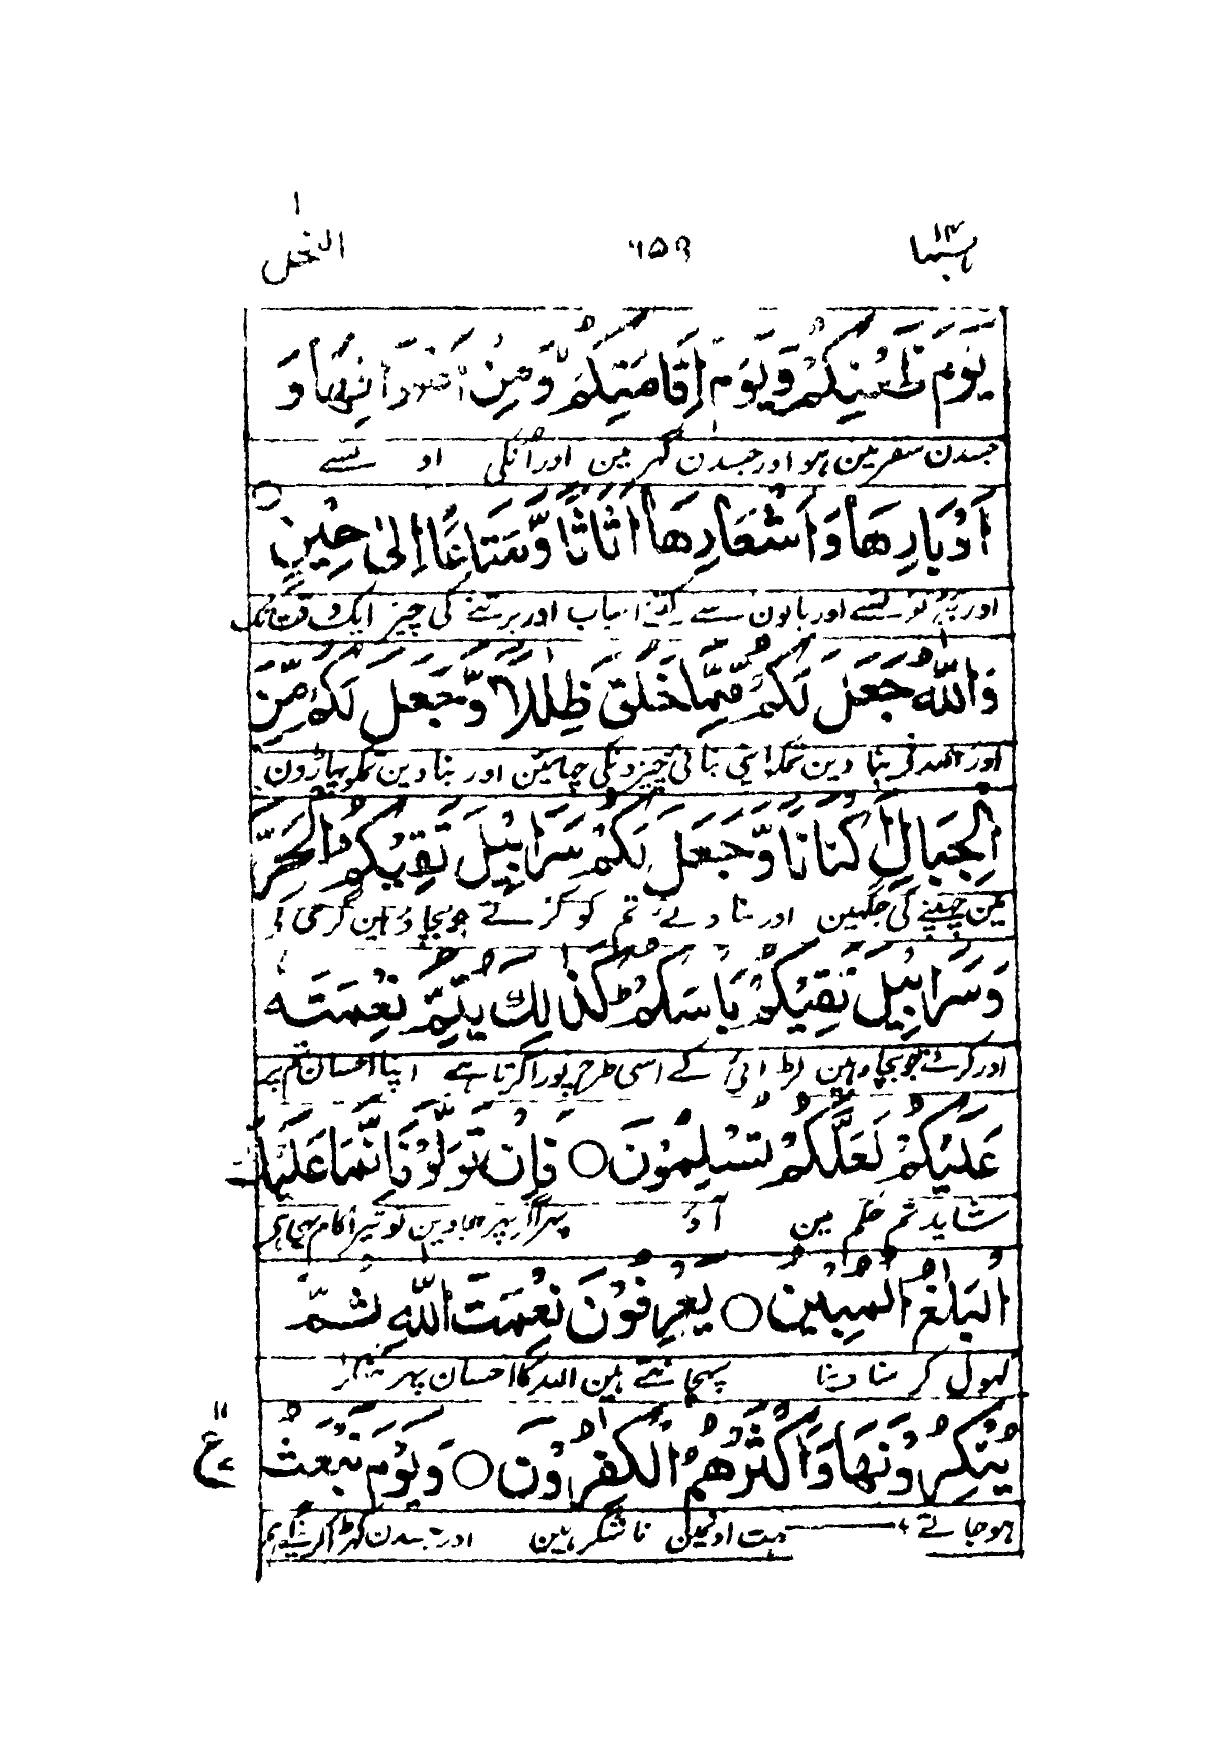 ربما ۱۴ ۶۵۹ النحل
يَوْمَ ظَعْنِكُمْ وَيَوْمَ إِقَامَتِكُمْ وَمِنْ أَصْوَافِهَا وَ
جسدن سفر مین ہو اور جسدن گھر مین اور اُنکی او سے
أَوْبَارِهَا وَأَشْعَارِهَا أَثَاثًا وَّمَتَاعًا إِلَىٰ حِينٍ ○
اور سے اور بالون سے کتنے اسباب اور برتنے کی چیز ایک وقت تک
وَاللّٰهُ جَعَلَ لَكُمْ مِّمَّا خَلَقَ ظِلٰلًا وَّجَعَلَ لَكُمْ مِّنَ
اور اللہ نی بنا دین تمکو اپنی بنائی چیزونکی چھائین اور بنا دین تمکو پہاڑون
الْجِبَالِ أَكْنَانًا وَّجَعَلَ لَكُمْ سَرَابِيلَ تَقِيكُمُ الْحَرَّ
مین چھپنے کی جگہین اور بنا دئے تم کو کرتے جو بچاو ہین گرمی کا
وَسَرَابِيلَ تَقِيكُمْ بَأْسَكُمْ كَذٰلِكَ يُتِمُّ نِعْمَتَهُ
اور کرتے جو بچاو ہین لڑائی کے اسی طرح پورا کرتا ہے اپنا احسان تم پر
عَلَيْكُمْ لَعَلَّكُمْ تُسْلِمُونَ ○ فَإِنْ تَوَلَّوْا فَإِنَّمَا عَلَيْكَ
شاید تم حکم مین آؤ پھر اگر پھر جاوین تو تیرا کام یہی ہی
الْبَلٰغُ الْمُبِينُ ○ يَعْرِفُونَ نِعْمَتَ اللّٰهِ ثُمَّ
کھول کر سنا دینا پہچانتے ہین اللہ کا احسان پھر منکر
يُنْكِرُونَهَا وَأَكْثَرُهُمُ الْكٰفِرُونَ ○ وَيَوْمَ نَبْعَثُ
ہو جاتے بہت اونمین ناشکر ہین اور جسدن کھڑا کرینگے ہم